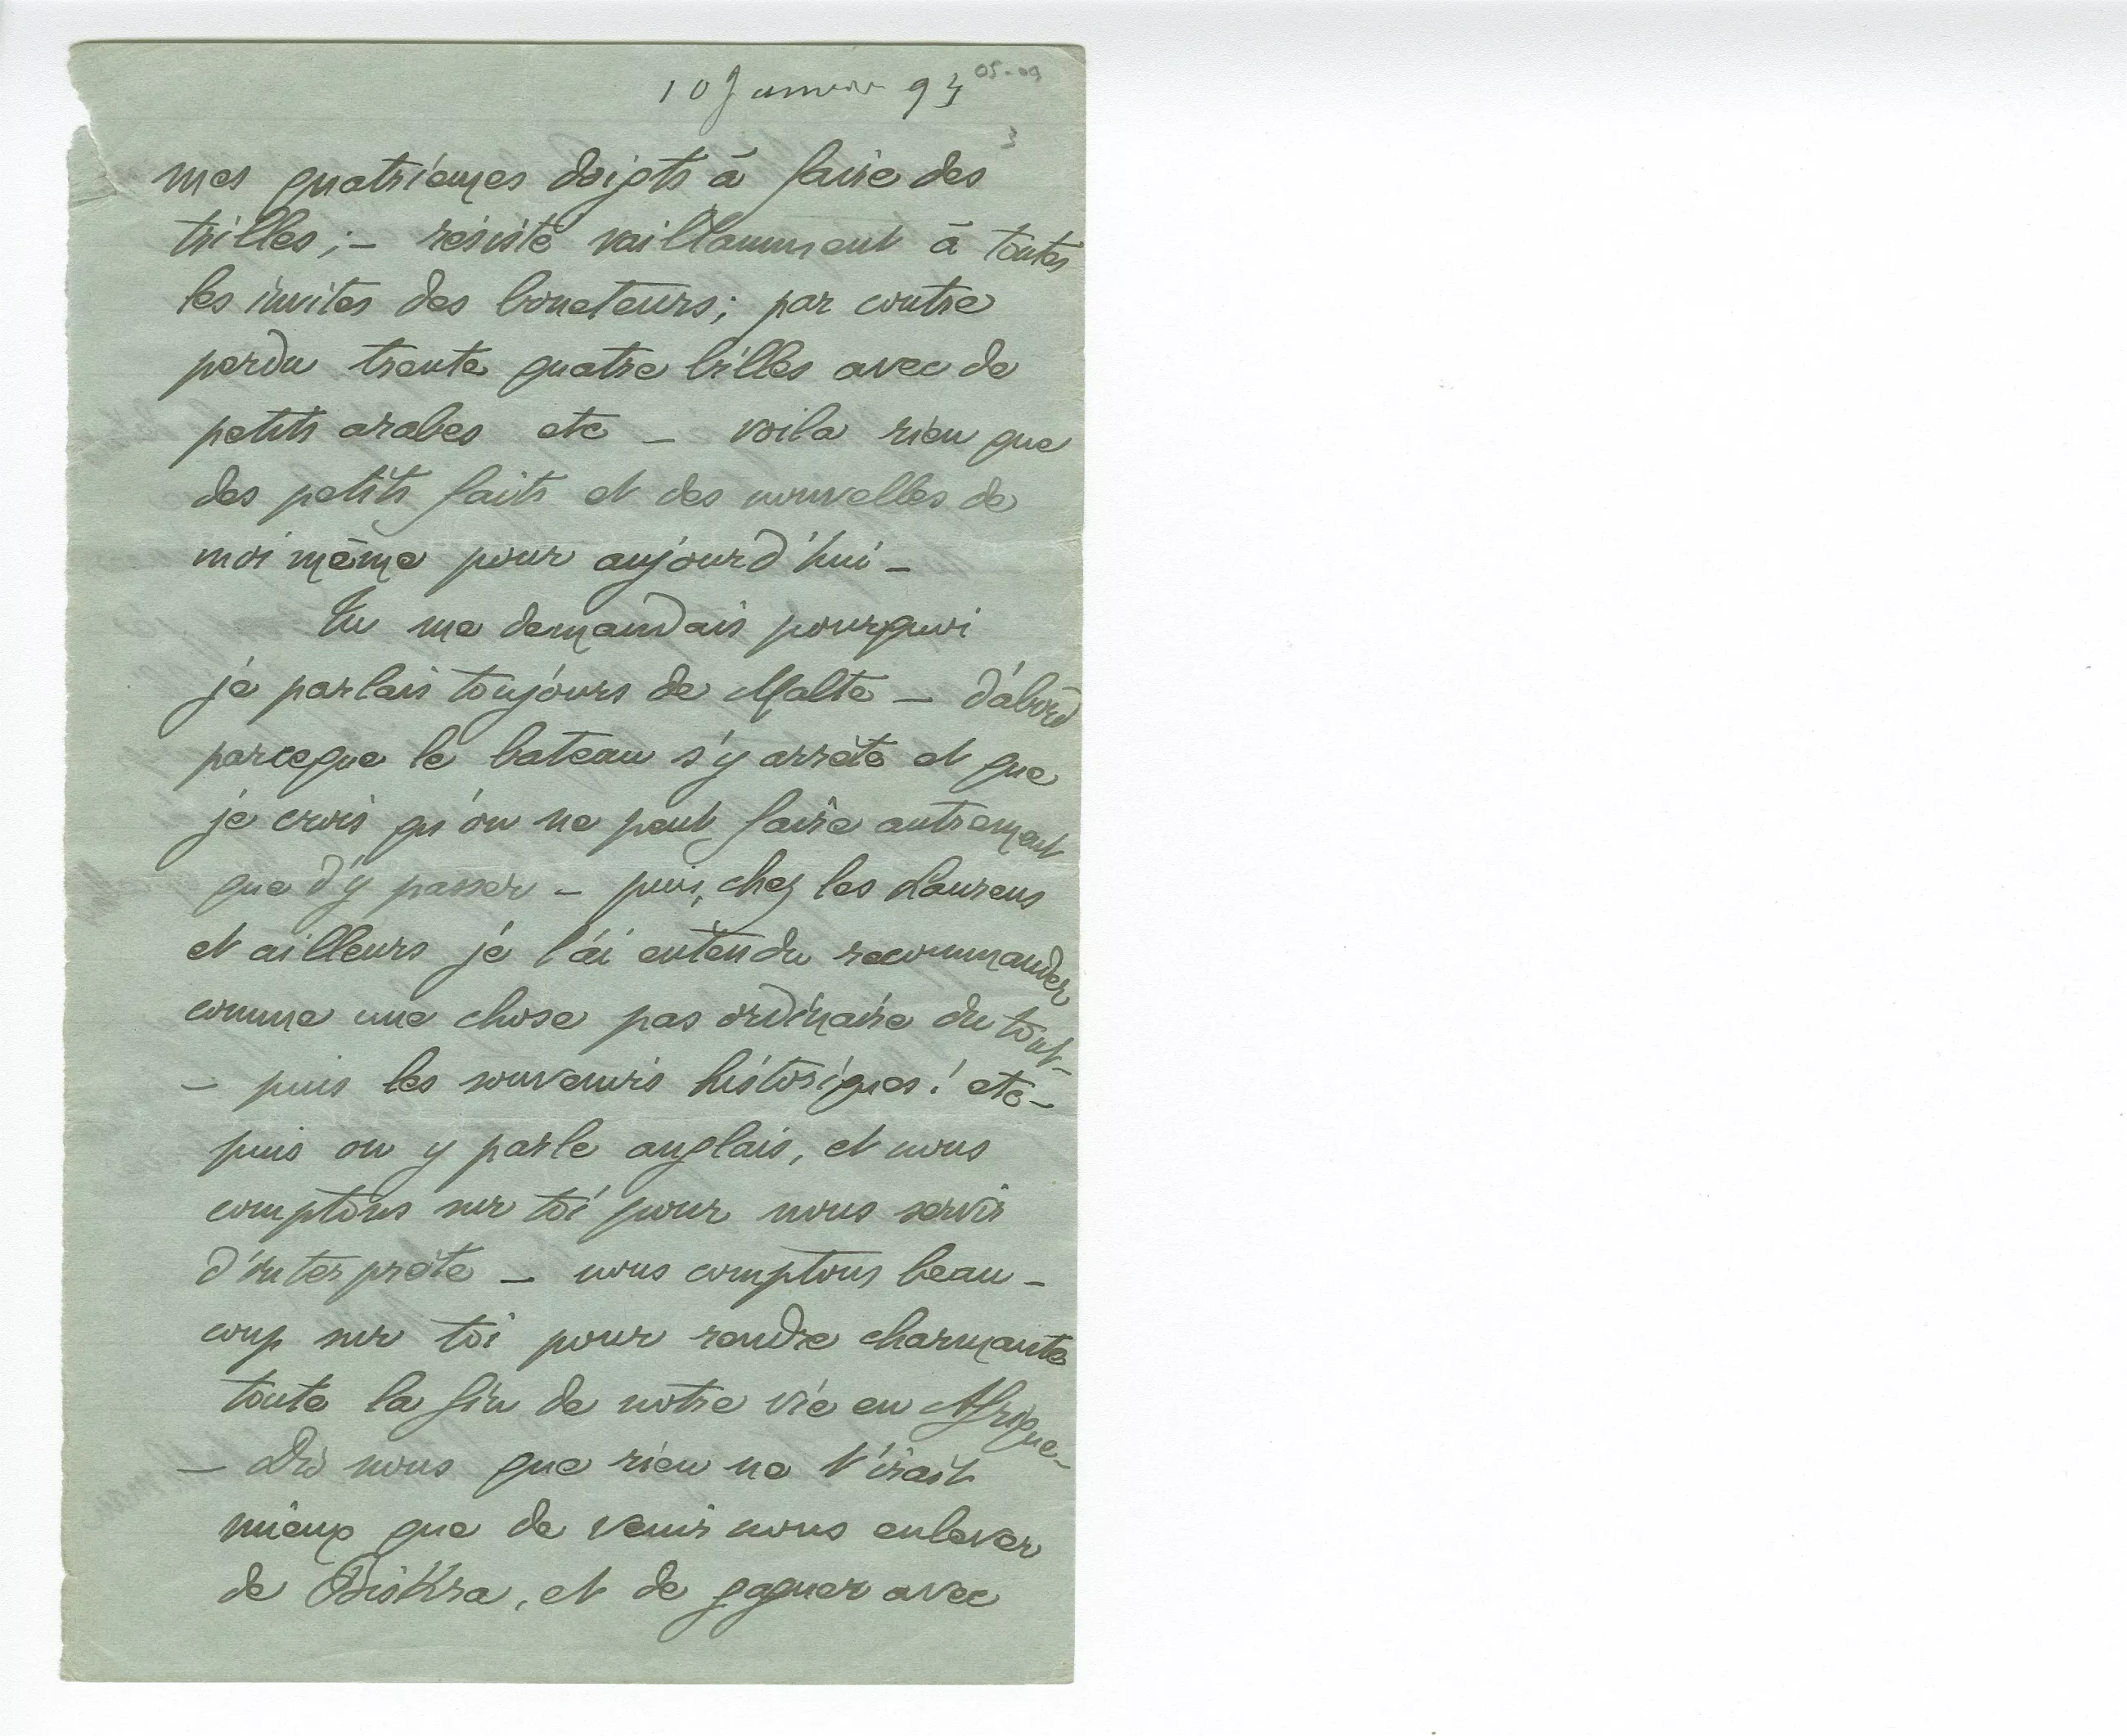 10 Janvier 94
05-09
3
mes quatrièmes doigts à faire des
trilles ; – résisté vaillamment à toutes
les invites des boneteurs ; par contre
perdu trente quatre billes avec de
petits arabes etc – voila rien que
des petits faits et des nouvelles de
moi même pour aujourd'hui –
Tu me demandais pourquoi
je parlais toujours de Malte – d'abord
parceque le bateau s'y arrête et que
je crois qu'on ne peut faire autrement
que d'y passer – puis, chez les Laurens
et ailleurs je l'ai entendu recommander
comme une chose pas ordinaire du tout –
– puis les souvenirs historiques ! etc –
puis on y parle anglais, et nous
comptons sur toi pour nous servir
d'interprète – nous comptons beau –
coup sur toi pour rendre charmante
toute la fin de notre vie en Afrique –
– Dis nous que rien ne t'irait
mieux que de venir nous enlever
de Biskra, et de gagner avec